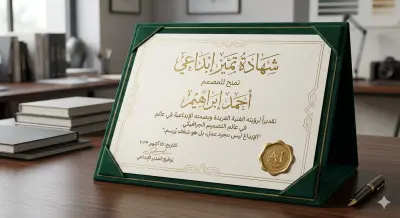 شهادة تميز إبداعي
تمنح للمصمم
أحمد إبراهيم
تقديراً لرؤيته الفنية الفريدة وبصمته الإبداعية في عالم
في عالم التصميم الجرافيكي.
"الإبداع ليس مجرد عمل، بل هو شغف يُرسم."
التاريخ: ١٥ أكتوبر ٢٠٢٣
توقيع المدير الإبداعي
AI